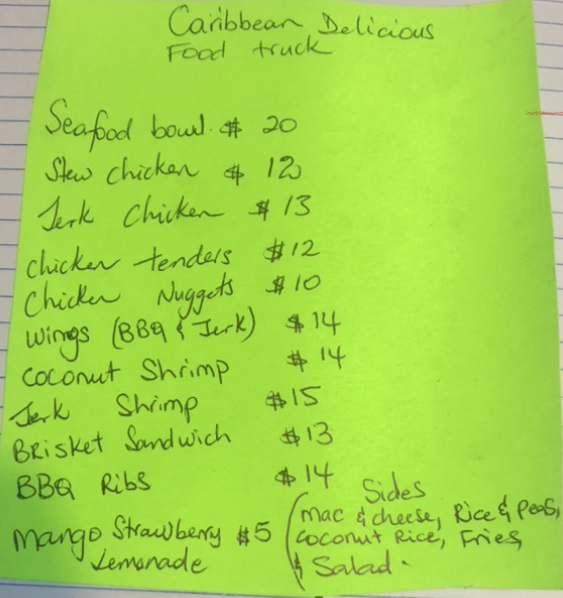 Caribbean Delicious
Food truck
Seafood bowl. $ 20
Stew chicken $ 12
Jerk Chicken $ 13
chicken tenders $12
Chicken Nuggets $10
Wings (BBQ & Jerk) $14
Coconut Shrimp $14
Jerk Shrimp $15
Brisket Sandwich $13
BBQ Ribs $14
Mango Strawberry $5
Lemonade
Sides
mac & cheese, Rice & Peas,
Coconut Rice, Fries,
& Salad.